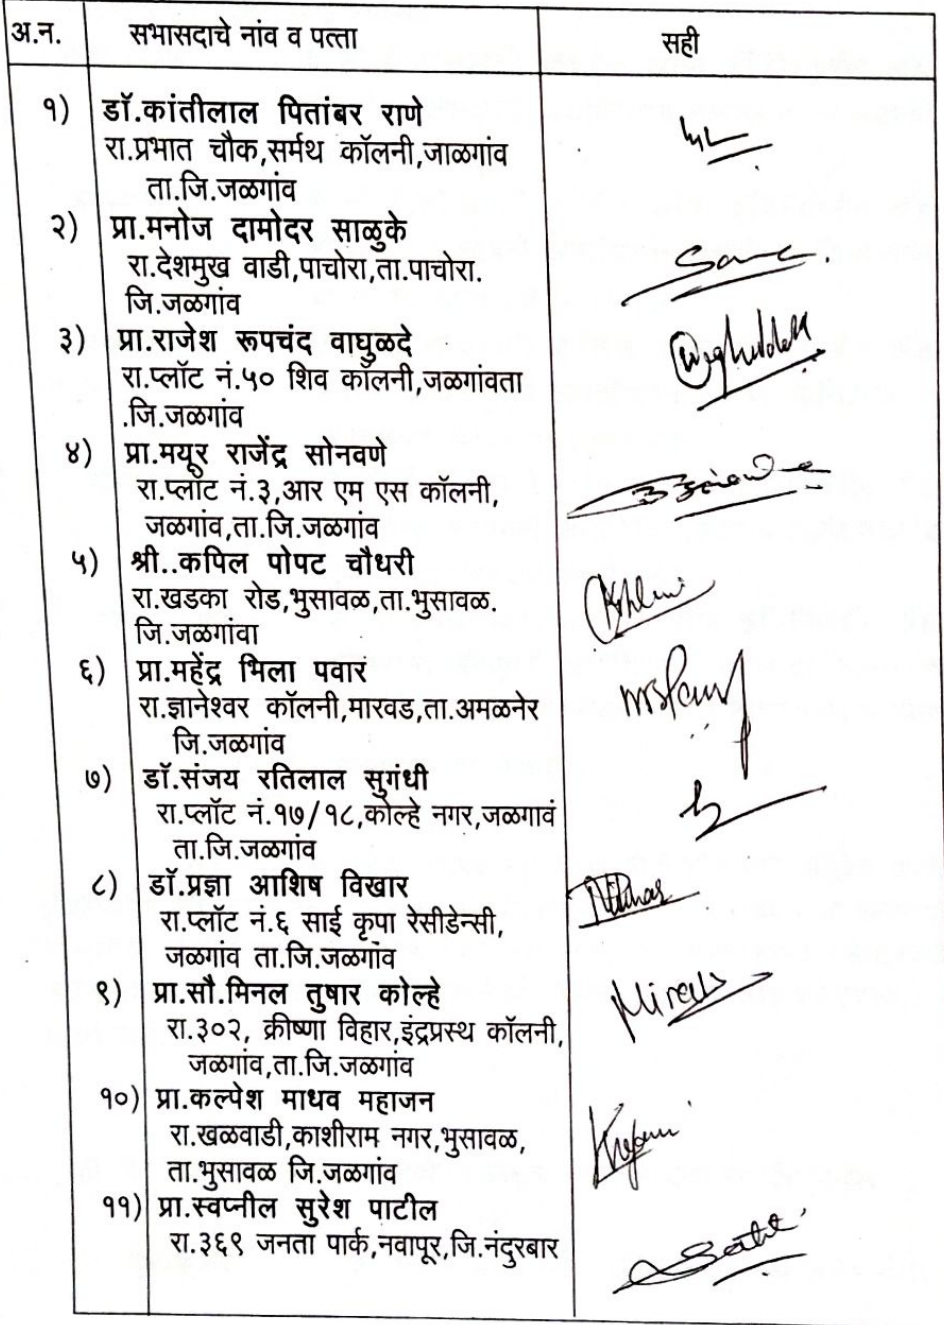 अ.न. सभासदाचे नांव व पत्ता सही
१) डॉ.कांतीलाल पितांबर राणे
रा.प्रभात चौक,सर्मथ कॉलनी,जाळगांव
ता.जि.जळगांव
२) प्रा.मनोज दामोदर साळुके
रा.देशमुख वाडी,पाचोरा,ता.पाचोरा.
जि.जळगांव
३) प्रा.राजेश रूपचंद वाघुळदे
रा.प्लॉट नं.५० शिव कॉलनी,जळगांवता
.जि.जळगांव
४) प्रा.मयूर राजेंद्र सोनवणे
रा.प्लॉट नं.३,आर एम एस कॉलनी,
जळगांव,ता.जि.जळगांव
५) श्री..कपिल पोपट चौधरी
रा.खडका रोड,भुसावळ,ता.भुसावळ.
जि.जळगांवा
६) प्रा.महेंद्र भिला पवार
रा.ज्ञानेश्वर कॉलनी,मारवड,ता.अमळनेर
जि.जळगांव
७) डॉ.संजय रतिलाल सुगंधी
रा.प्लॉट नं.१७/१८,कोल्हे नगर,जळगावं
ता.जि.जळगांव
८) डॉ.प्रज्ञा आशिष विखार
रा.प्लॉट नं.६ साई कृपा रेसीडेन्सी,
जळगांव ता.जि.जळगांव
९) प्रा.सौ.मिनल तुषार कोल्हे
रा.३०२, क्रीष्णा विहार,इंद्रप्रस्थ कॉलनी,
जळगांव,ता.जि.जळगांव
१०) प्रा.कल्पेश माधव महाजन
रा.खळवाडी,काशीराम नगर,भुसावळ,
ता.भुसावळ जि.जळगांव
११) प्रा.स्वप्नील सुरेश पाटील
रा.३६९ जनता पार्क,नवापूर,जि.नंदुरबार